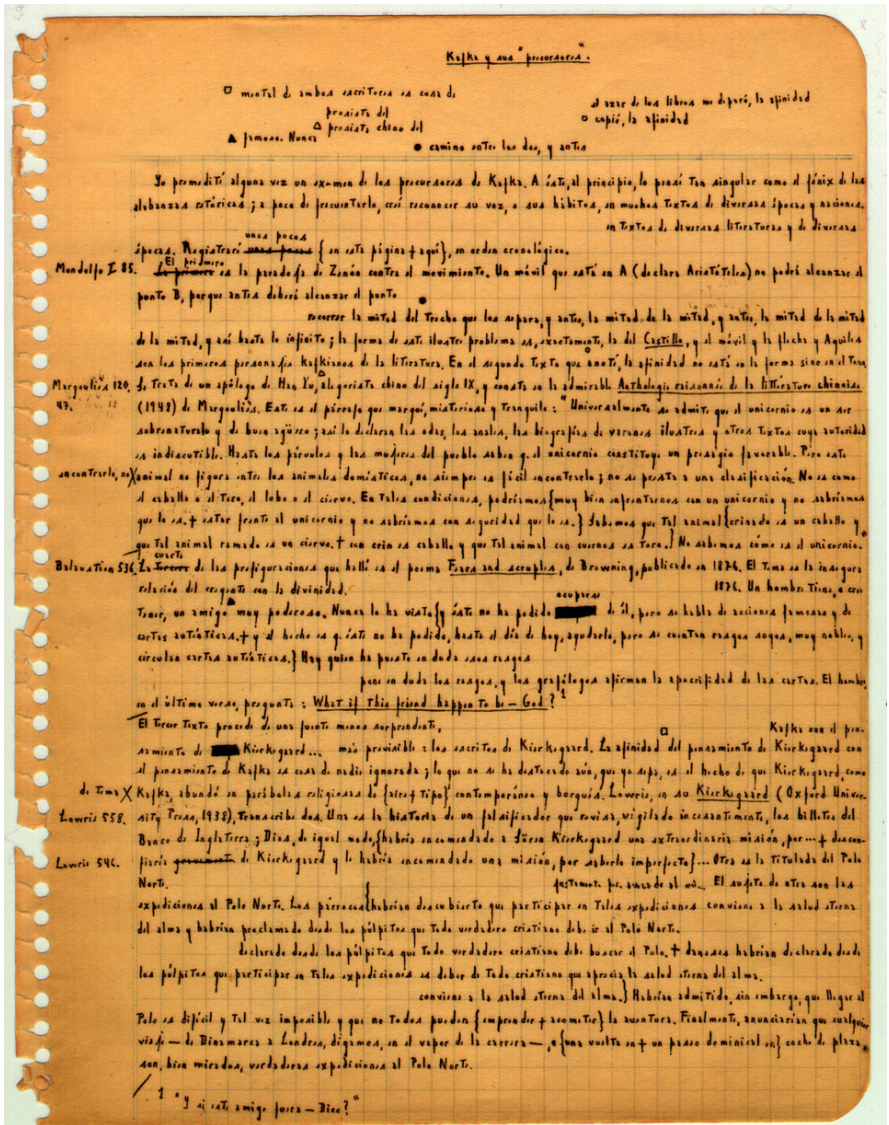 Kafka y sus "precursores".
□ mental de ambos escritores es cosa de
prosista del
△ prosista chino del
el azar de los libros me deparó, la afinidad
○ copió, la afinidad
▲ famoso. Nunca
● camino entre los dos, y antes
Yo premedité alguna vez un examen de los precursores de Kafka. A éste, al principio, lo pensé tan singular como el fénix de las
alabanzas retóricas; a poco de frecuentarlo, creí reconocer su voz, o sus hábitos, en muchos textos de diversas épocas y naciones.
en textos de diversas literaturas y de diversas
unos pocos
épocas. Registraré unos pocos { en esta página + aquí}, en orden cronológico.
Mondolfo I 85.
El primero
La primera es la paradoja de Zenón contra el movimiento. Un móvil que está en A (declara Aristóteles) no podrá alcanzar el
punto B, porque antes deberá alcanzar el punto
●
recorrer la mitad del trecho que los separa, y antes, la mitad de la mitad, y antes, la mitad de la mitad
de la mitad, y así hasta lo infinito; la forma de este ilustre problema es, exactamente, la del Castillo, y el móvil y la flecha y Aquiles
son los primeros personajes kafkianos de la literatura. En el segundo texto que anoté, la afinidad no está en la forma sino en el tono.
Margouliès 120,
47. 12
Se trata de un apólogo de Han Yu, alegorista chino del siglo IX, y consta en la admirable Anthologie raisonnée de la littérature chinoise
(1948) de Margouliès. Este es el párrafo que marqué, misterioso y tranquilo: "Universalmente se admite que el unicornio es un ser
sobrenatural y de buen agüero; así lo declaran las odas, los anales, las biografías de varones ilustres y otros textos cuya autoridad
es indiscutible. Hasta los párvulos y las mujeres del pueblo saben q. el unicornio constituye un presagio favorable. Pero este
encontrarlo, no X animal no figura entre los animales domésticos, no siempre es fácil encontrarlo; no se presta a una clasificación. No es como
el caballo o el toro, el lobo o el ciervo. En tales condiciones, podríamos {muy bien enfrentarnos con un unicornio y no sabríamos
que lo es. + estar frente al unicornio y no sabríamos con seguridad que lo es.} Sabemos que tal animal {crinado es un caballo y
que tal animal ramado es un ciervo. + con crin es caballo y que tal animal con cuernos es toro.} No sabemos cómo es el unicornio."
Balaustion 536.
cuarta
La tercera de las prefiguraciones que hallé es el poema Fears and scruples, de Browning, publicado en 1876. El tema es la insegura
relación del creyente con la divinidad.
1876. Un hombre tiene, o cree
ocuparse
tener, un amigo ▲ muy poderoso. Nunca lo ha visto {y éste no ha podido de él, pero se habla de acciones famosas y de
cartas auténticas. + y el hecho es q. éste no ha podido, hasta el día de hoy, ayudarlo, pero se cuentan rasgos suyos, muy nobles, y
circulan cartas auténticas.} Hay quien ha puesto en duda esos rasgos
pone en duda los rasgos, y los grafólogos afirman la apocrifidad de las cartas. El hombre,
en el último verso, pregunta: What if this friend happen to be — God? 1
El tercer texto procede de una fuente menos sorprendente,
□
Kafka con el pen-
samiento de Kierkegaard... más previsible: los escritos de Kierkegaard. La afinidad del pensamiento de Kierkegaard con
el pensamiento de Kafka es cosa de nadie ignorada; lo que no se ha destacado aún, que yo sepa, es el hecho de que Kierkegaard, como
de tema X Kafka, abundó en parábolas religiosas de {aire + tipo} contemporáneo y burgués. Lowrie, en su Kierkegaard (Oxford Univer-
Lowrie 558.
sity Press, 1938), transcribe dos. Una es la historia de un falsificador que revisa, vigilado incesantemente, los billetes del
Banco de Inglaterra; Dios, de igual modo, {habría encomendado a Sören Kierkegaard una extraordinaria misión, por ... + descon-
Lowrie 546.
fiaría de Kierkegaard y le habría encomendado una misión, por saberlo imperfecto}... Otra es la titulada del Polo
Norte. El sujeto de otra son las
expediciones al Polo Norte. Los párrocos {habrían descubierto que participar en tales expediciones conviene a la salud eterna
del alma y habrían proclamado desde los púlpitos que todo verdadero cristiano debe ir al Polo Norte.
declarado desde los púlpitos que todo verdadero cristiano debe buscar el Polo. + daneses habrían declarado desde
los púlpitos que participar en tales expediciones es deber de todo cristiano que aprecia la salud eterna del alma.
conviene a la salud eterna del alma.} Habrían admitido, sin embargo, que llegar al
Polo es difícil y tal vez imposible y que no todos pueden {emprender + acometer} la aventura. Finalmente, anunciarían que cualquier
viaje — de Dinamarca a Londres, digamos, en el vapor de la carrera —, o {una vuelta en + un paseo dominical en} coche de plaza,
son, bien mirados, verdaderas expediciones al Polo Norte.
1 "Y si este amigo fuera — Dios?"